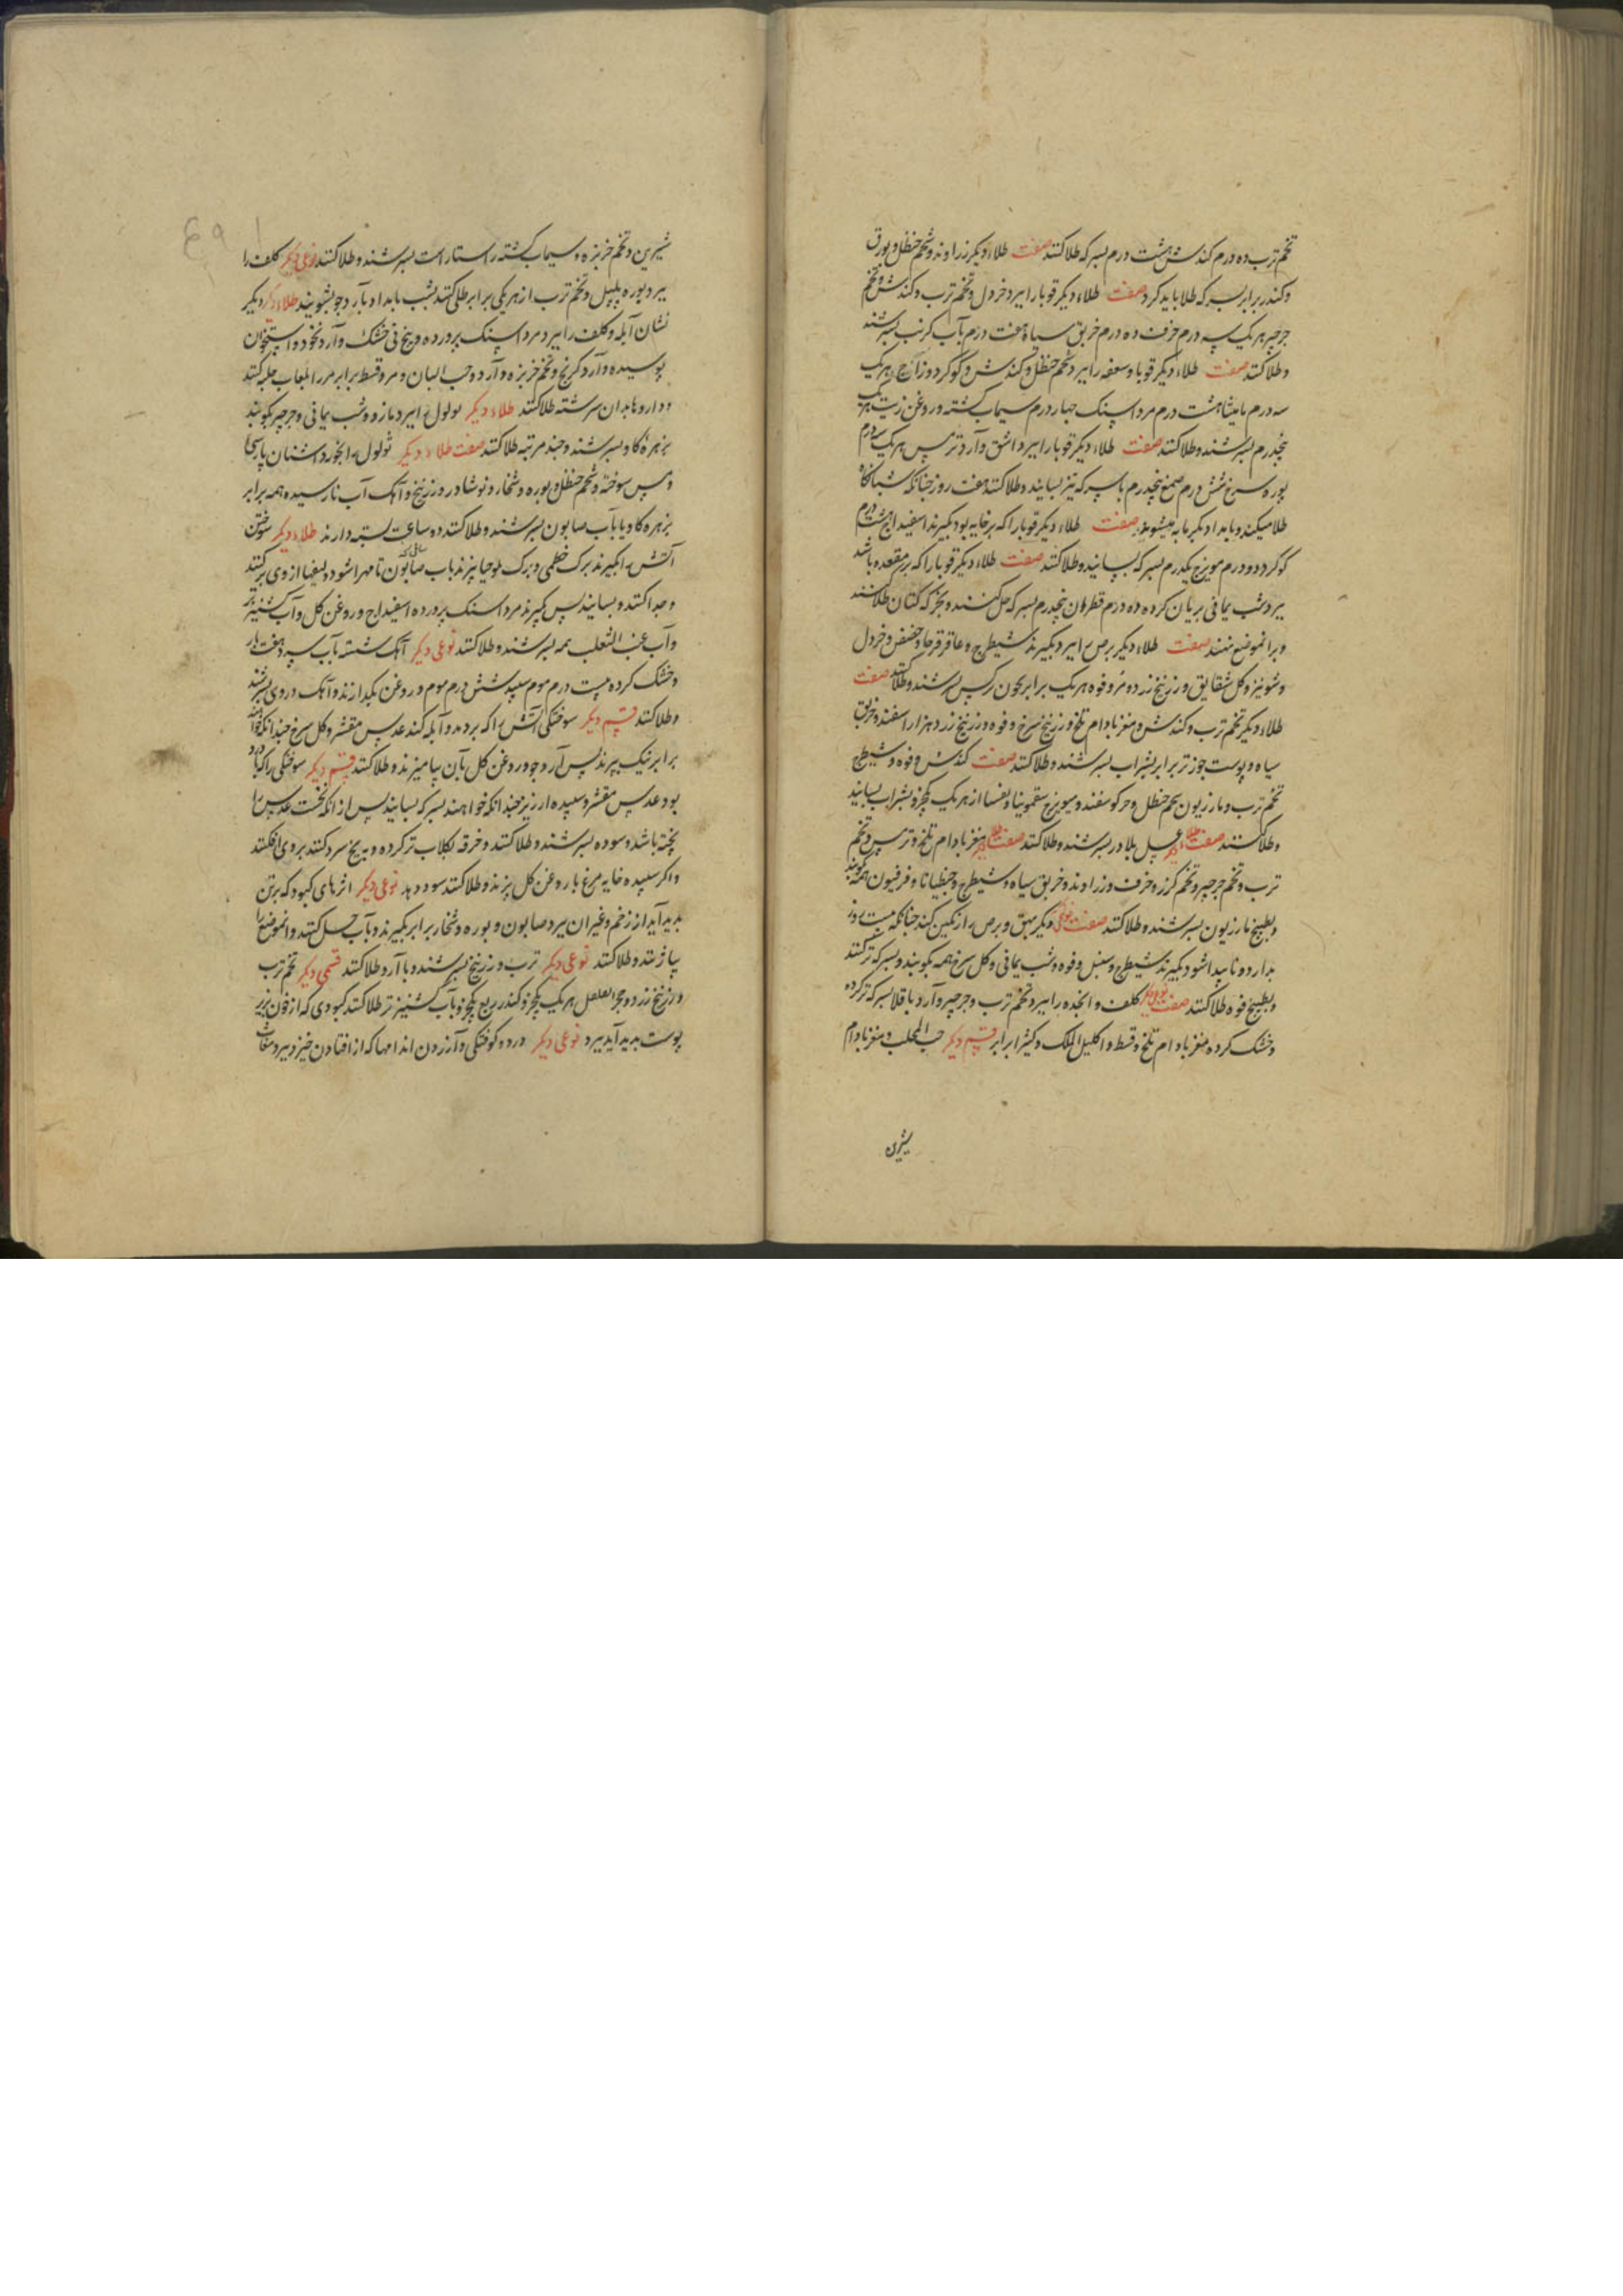 تخم ترب ده درم کندش هشت درم بسرکه طلا کنند صفت طلاء دیکر زراوند و شحم حنظل و بورق
و کندر برابر بسرکه طلا باید کرد صفت طلاء دیکر قوبا را ببرد خردل و تخم ترب و کندش و تخم
جرجیر هر یک سه درم حرف ده درم خربق سیاه هفت درم بآب کرنب بسرشند
و طلا کنند صفت طلاء دیکر قوبا و سعفه را ببرد شحم حنظل و کندش و کوکرد و زاج هر یک
سه درم مامیثا هشت درم مرداسنک چهار درم سیماب کشته و روغن زیت هر یک
پنجدرم بسرشند و طلا کنند صفت طلاء دیکر قوبا را ببرد اشق و آرد ترمس هر یک سه درم
بوره سرخ شش درم صمغ پنجدرم با سرکه تیز بسایند و طلا کنند هفت روز چنانکه شبانکاه
طلا میکنند و بامداد دیکر باره میشویند صفت طلاء دیکر قوبا را که بر خایه بود بکیرند اسفیداج هشت درم
کوکرد دو درم مویزج یکدرم بسرکه بسایند و طلا کنند صفت طلاء دیکر قوبا را که بر مقعده باشد
ببرد شب یمانی بریان کرده ده درم قطران پنجدرم بسرکه حل کنند و بخرقه کتان طلا کنند
و بر انموضع نهند صفت طلاء دیکر برص را ببرد بکیرند شیطرج و عاقرقرحا و خردل
و شونیز و کل شقایق و زرنیخ زرد و مر و فوه هر یک برابر بخون بسرشند و طلا کنند صفت
طلاء دیکر تخم ترب و کندش و مغز بادام تلخ و زرنیخ سرخ و فوه و زرنیخ زرد هزار اسفند و خربق
سیاه و پوست جوز تر برابر بشراب بسرشند و طلا کنند صفت کندش و فوه و شیطرج
تخم ترب و مازریون شحم حنظل و میویزج سقمونیا و تفسیا از هر یک یکجزو بشراب بسایند
و طلا کنند صفت طلاء دیکر عسل بلادر بسرشند و طلا کنند صفت طلاء دیکر مغز بادام تلخ و ترمس و تخم
ترب و تخم جرجیر و تخم کرز و حرف و زراوند و خربق سیاه و شیطرج و جنطیانا و فرفیون همه بکوبند
و بطبیخ مازریون بسرشند و طلا کنند صفت نوعی دیکر بهق و برص را رنکین کند چنانکه بیست روز
بدارد و ناپیدا شود بکیرند شیطرج و سنبل و فوه و شب یمانی و کل سرخ همه بکوبند و بسرکه تر کنند
و بطبیخ فوه طلا کنند صفت نوعی دیکر کلف و انجده را ببرد تخم ترب و جرجیر و آرد باقلا بسرکه تر کرده
و خشک کرده مغز بادام تلخ و قسط و اکلیل الملک و کثیرا برابر قسم دیکر حب المحلب و مغز بادام
شیرین
شیرین و تخم خربزه و سیماب کشته راستا راست بسرشند و طلا کنند نوعی دیکر کلف را
ببرد بوره پلپل و تخم ترب از هر یکی برابر طلی کنند بشب بامداد بآرد جو بشویند طلاء دیکر دیکر
نشان آبله و کلف را ببرد مرداسنک پرورده و بیخ نی خشک و آرد نخود و استخوان
پوسیده و آرد کرنج و تخم خربزه و آرد و حب البان و مر و قسط برابر مر لعاب حلبه کنند
و داروها بدان سرشته طلا کنند طلاء دیکر ثولول را ببرد مازو و شب یمانی و جرجیر بکوبند
بزهره کاو بسرشند و چند مرتبه طلا کنند صفت طلاء دیکر ثولول را بخورد اشنان پارسی
و مس سوخته و شحم حنظل و بوره و شخار و نوشادر و زرنیخ و آهک آب نارسیده همه برابر
بزهره کاو یا بآب صابون بسرشند و طلا کنند ده ساعت بسته دارند طلاء دیکر سوختن
آتش را بکیرند برک خطمی و برک ملوخیا بپزند بآب صابون تا مهرا شود و لیفها از وی بر کنند
و جدا کنند و بسایند پس بکیرند مرداسنک پرورده اسفیداج و روغن کل و آب کشنیز تر
و آب عنب الثعلب همه بسرشند و طلا کنند نوعی دیکر آهک شسته بآب سرد هفت بار
و خشک کرده بیست درم موم سپید شش درم موم و روغن بکدازند و آهک در وی بسرشند
و طلا کنند قسم دیکر سوختکی آتش را که بردمد و آبله کند عدس مقشر و کل سرخ چندانکه خواهند
برابر نیک بپزند پس آرد جو در روغن کل بآن بیامیزند و طلا کنند قسم دیکر سوختکی را که با درد
بود عدس مقشر و سپیده ارزیز چندانکه خواهند بسرکه بسایند پس از انکه نخست عدس را
پخته باشد و سوده بسرشند و طلا کنند و خرقه بکلاب تر کرده و به یخ سرد کنند بر وی افکنند
و اکر سپیده خایه مرغ با روغن کل بزنند و طلا کنند سود دهد نوعی دیکر اثرهای کبود که بر تن
بدید آید از زخم و غیر ان ببرد صابون و بوره و شخار برابر بکیرند و بآب حل کنند و انموضع را
بیاژنند و طلا کنند نوعی دیکر ترب و زرنیخ بسرشند و با آرد طلا کنند قسمی دیکر تخم ترب
و زرنیخ زرد و حجر الفلفل هر یک یکجزو کندر ربع یکجزو بآب کشنیز تر طلا کنند کبودی که از خون زیر
پوست بدید آید ببرد نوعی دیکر درد و کوفتکی و آزردن اندامها که از افتادن خیزد ببرد مغاث